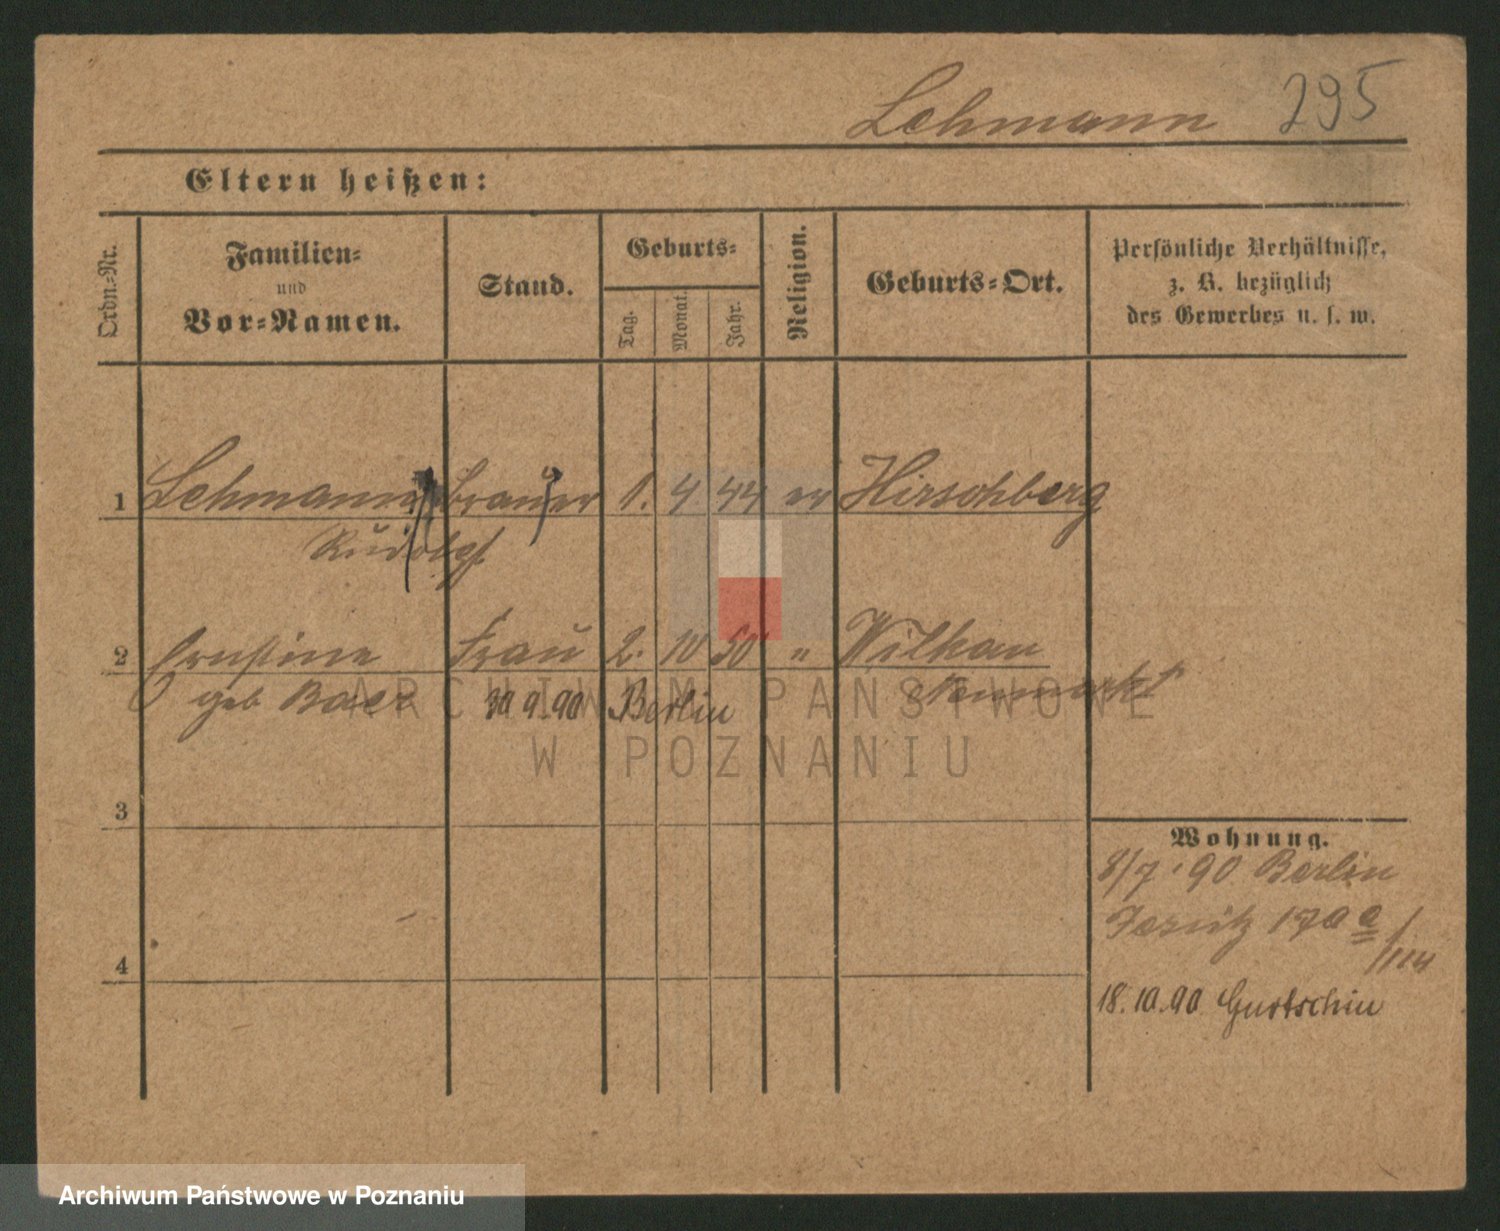 Lehmann 295
Eltern heißen:
Ordn.-Nr.
Familien-
und
Vor-Namen.
Stand.
Geburts-
Tag.
Monat.
Jahr.
Religion.
Geburts-Ort.
Persönliche Verhältnisse,
z. B. bezüglich
des Gewerbes u. s. w.
1 Lehmann Brauer 1. 4 44 ev Hirschberg
Rudolf
2 Ernstine Frau 2. 10 50 " Wilkau
geb 30 9.90 Berlin Neumarkt
ARCHIWUM PAŃSTWOWE
W POZNANIU
3
Wohnung.
8/7.90 Berlin
170a
/114
4
18.10.90 Gurtschin
Archiwum Państwowe w Poznaniu